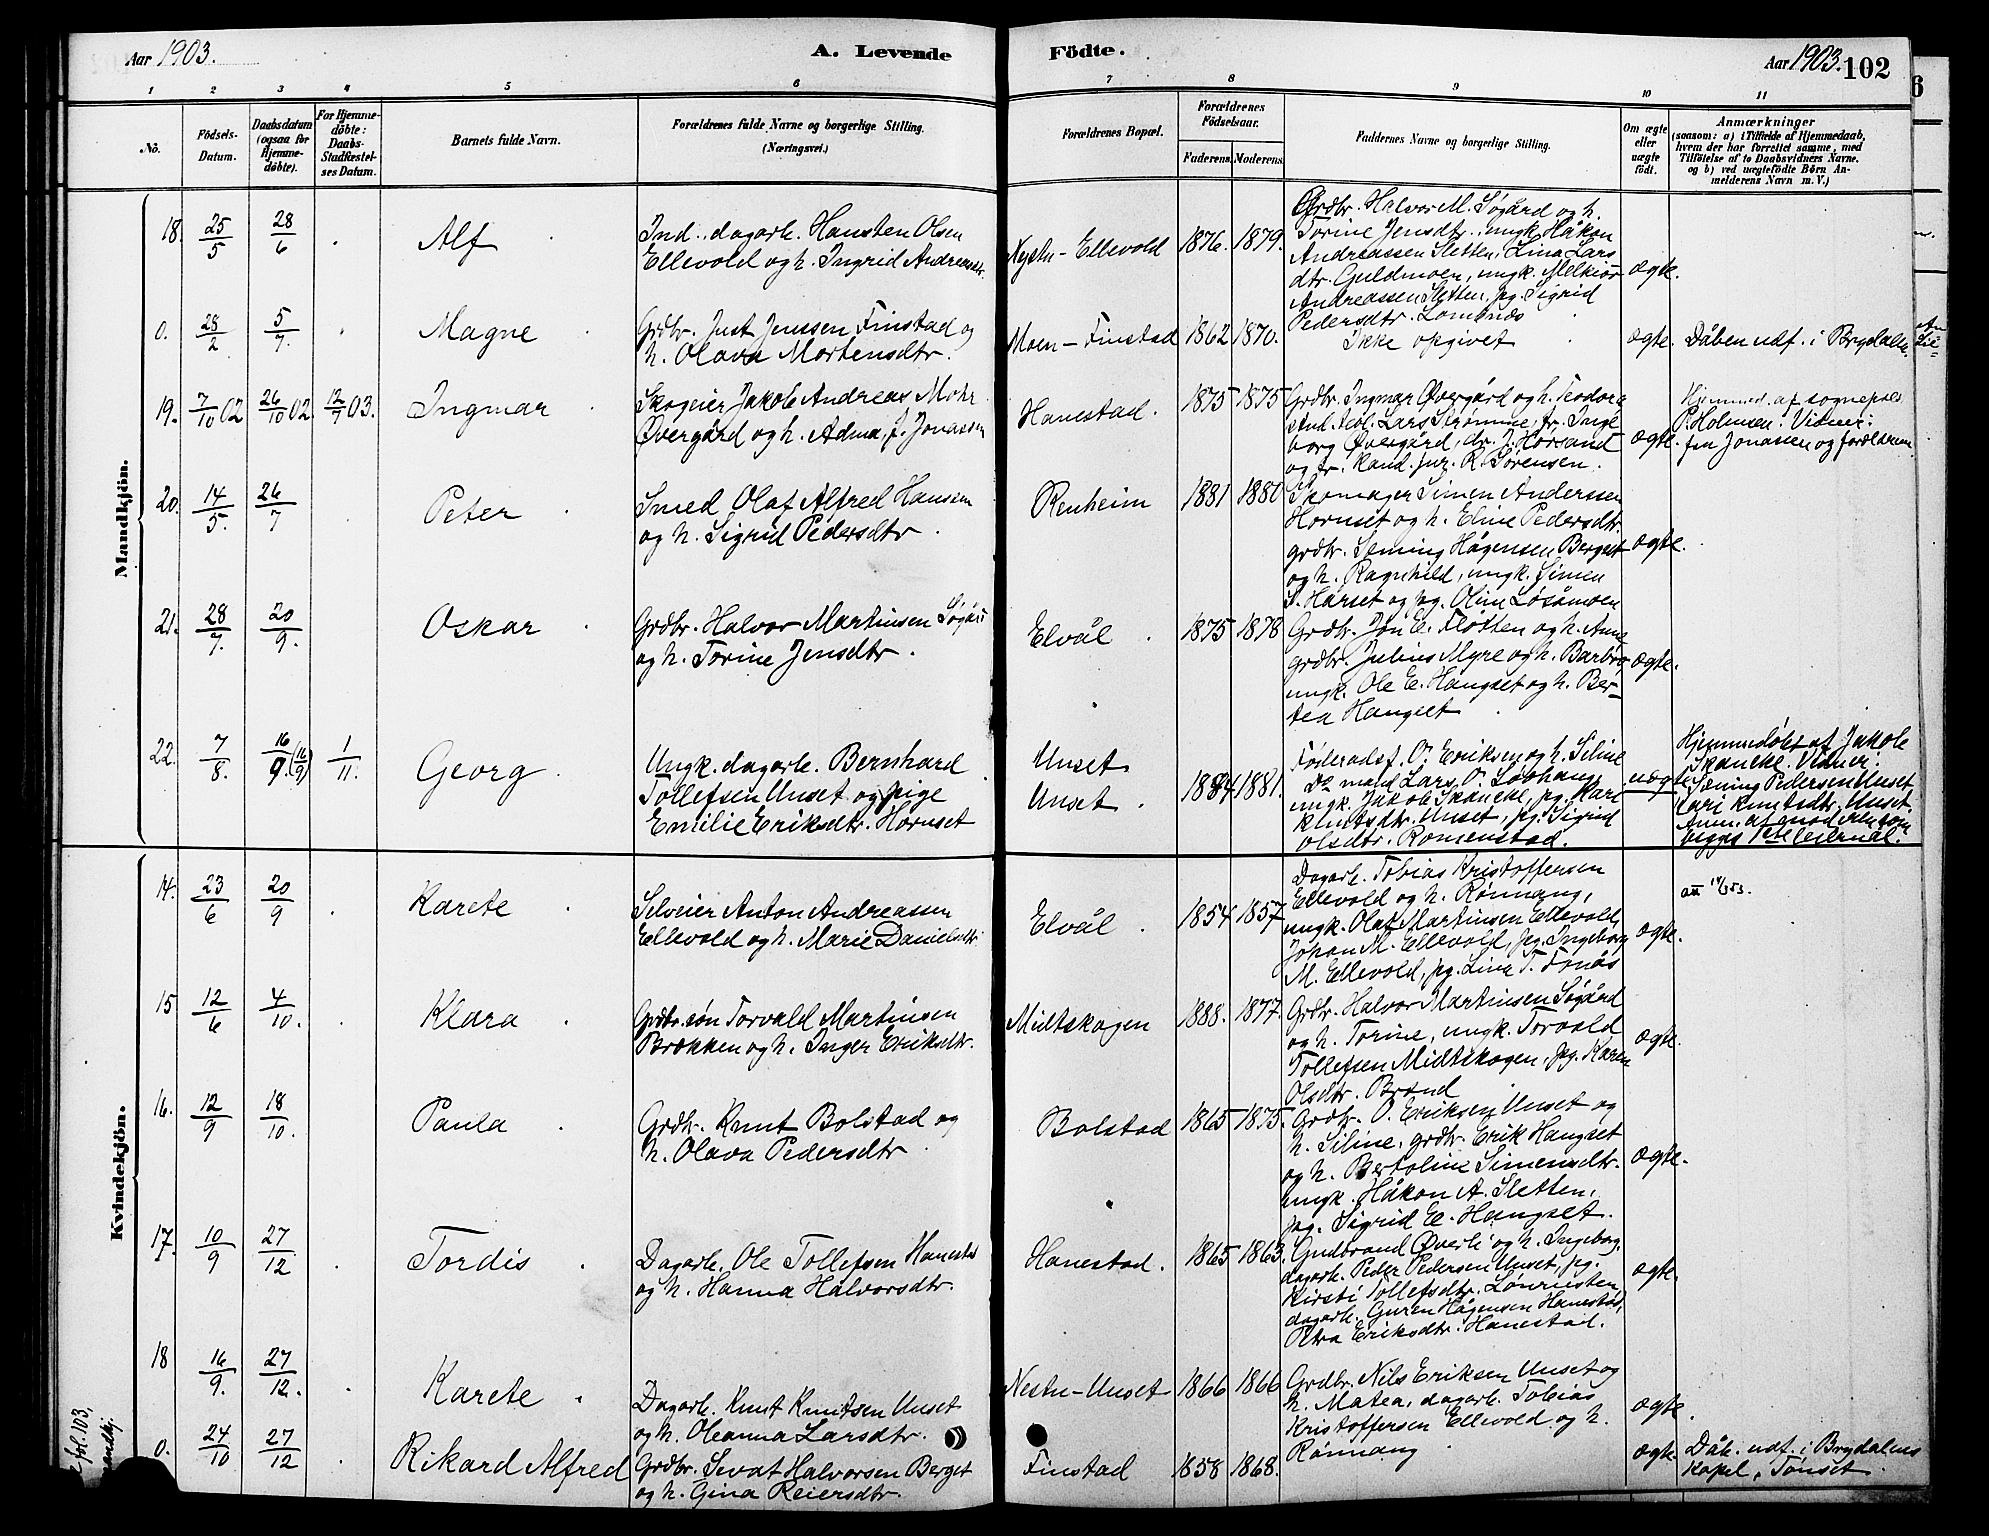 Aar 1903.
A. Levende
Födte.
Aar 1903. 102
1 2 3 4 5 6
7 8 9 10 11
No.
Födsels-Datum.
Daabsdatum (ogsaa for Hjemmedöbte).
For Hjemmedöbte: Daabs-Stadfæstelses Datum.
Barnets fulde Navn.
Forældrenes fulde Navne og borgerlige Stilling.
(Næringsvei.)
Forældrenes Bopæl.
Forældrenes Födselsaar.
Faderens. Moderens.
Faddernes Navne og borgerlige Stilling.
Om ægte eller uægte födt.
Anmærkninger
(saasom: a) i Tilfælde af Hjemmedaab,
hvem der har forrettet samme, med
Tilföielse af to Daabsvidners Navne.
og b) ved uægtefödte Börn Anmelderens
Navn m. V.)
Mandkjön.
18. 25/5 28/6 Alf
Ind., dagarb. Hansten Olsen
Ellevold og h. Ingrid Andreasdtr.
Nystu-Ellevold 1876. 1879.
Grdbr. Halvor M. Søgård og h.
Torine Jensdtr., ungk. Håkon
Andreassen Sletten, Lina Lars
dtr. Guldmoen, ungk. Melkior
Andreassen Sletten, pg. Sigrid
Pedersdtr. Lomnæs
ægte.
0. 28/2 5/7. Magne
Grdbr. Just Jenssen Finstad og
h. Olava Mortensdtr.
Moen-Finstad 1862 1870.
Ikke opgivet
ægte. Dåben udf. i Brydalen.
19. 7/10 02 26/10 02. 12/9 03. Ingmar
Skogeier Jakob Andreas Mohr
Øvergård og h. Adma, f. Jonassen
Hanestad. 1875 1875
Grdbr. Ingmar Øvergård og h. Teodora
stud. teol. Lars Strømme, fr. Inge
borg Øvergård, dr. J. Horsand
og fr. kand. jur. R. Sørensen.
ægte.
Hjemmed. af sognepr.
P. Holmsen. Vidner:
fru Jonassen og forældrene
20. 14/5. 26/7 Peter
Smed Olaf Alfred Hansen
og h. Sigrid Pedersdtr.
Renheim 1881 1880
Skomager Simen Anderssen
Hornset og h. Eline Pedersdtr.
grdbr. Seming Hågensen Berget
og h. Ragnhild, ungk. Simen
S. Harset og pg. Oline Løsåmoen
ægte.
21. 28/7. 20/9. Oskar
Grdbr. Halvor Martinsen Søgård
og h. Torine Jensdtr.
Elvål. 1875 1878
Grdbr. Jon E. Fløtten og h. Anne
grdbr. Julius Myre og h. Barbro
ungk. Ole E. Hangset og h. Ber-
tea Hangset
ægte.
22. 7/8. 16/9 (16/9) 1/11. Georg
Ungk. dagarb. Bernhard
Tollefsen Unset og pige
Emilie Eriksdtr. Hornset
Unset.
Unset. 1884 1881.
Føderadsf. O. Eriksen og h. Siline
Do mand Lars O. Løvhaug
ungk. Jakob Skancke, pg. Kari
Knutsdtr. Unset, pg. Sigrid
Olsdtr. Romenstad.
uægte
Hjemmedøbt af Jakob
Skancke. Vidner:
Seming Pedersen Unset
Kari Knutsdtr. Unset.
Anm. af moderen som
begges 1ste leiermål.
Kvindekjön.
14. 23/6 20/9 Karete
Selveier Anton Andreassen
Ellevold og h. Marie Danielsdtr.
Elvål. 1854 1857
Dagarb. Tobias Kristoffersen
Ellevold og h. Rønnaug,
ungk. Olaf Martinsen Ellevold
Johan M. Ellevold, pg. Ingeborg
M. Ellevold, pg. Lina T. Fonås
ægte.
15 12/6 4/10. Klara
Grdbr.søn Torvald Martinsen
Brækken og h. Inger Eriksdtr.
Midtskogen 1888. 1877.
Grdbr. Halvor Martinsen Søgård
og h. Torine, ungk. Torvald
Tollefsen Midtskogen, pg. Karen
Olsdtr. Brænd
ægte.
16. 12/9 18/10. Paula
Grdbr. Knut Bolstad og
h. Olava Pedersdtr.
Bolstad 1865 1875.
Grdbr. O. Eriksen Unset og
h. Siline, grdbr. Erik Hangset
og h. Bertoline Simensdtr.
ungk. Håkon A. Sletten,
pg. Sigrid E. Hangset.
ægte.
17. 10/9 27/12 Tordis
Dagarb. Ole Tollefsen Hanestad
og h. Hanna Halvorsdtr.
Hanestad. 1865 1863.
Gudbrand Øverli og h. Ingeborg,
dagarb. Peder Pedersen Unset, pg.
Kirsti Tollefsdtr. Lønnesten
dagarb. Guren Hågensen Hanestad,
Petra Eriksdtr. Hanestad.
ægte.
18 16/9. 27/12. Karete
Dagarb. Knut Knutsen Unset
og h. Oleanna Larsdtr.
Nestu-Unset 1866 1866
Grdbr. Nils Eriksen Unset og
h. Matea, dagarb. Tobias
Kristoffersen Ellevold og h.
Rønnaug
ægte.
0. 24/10 27/12 Rikard Alfred
Grdbr. Sevat Halvorsen Berget
og h. Gina Reiersdtr.
Finstad 1858 1868.
ægte. Dåb. udf. i Brydalens
kapel, Tønset.
fol. 103,
mandkj.